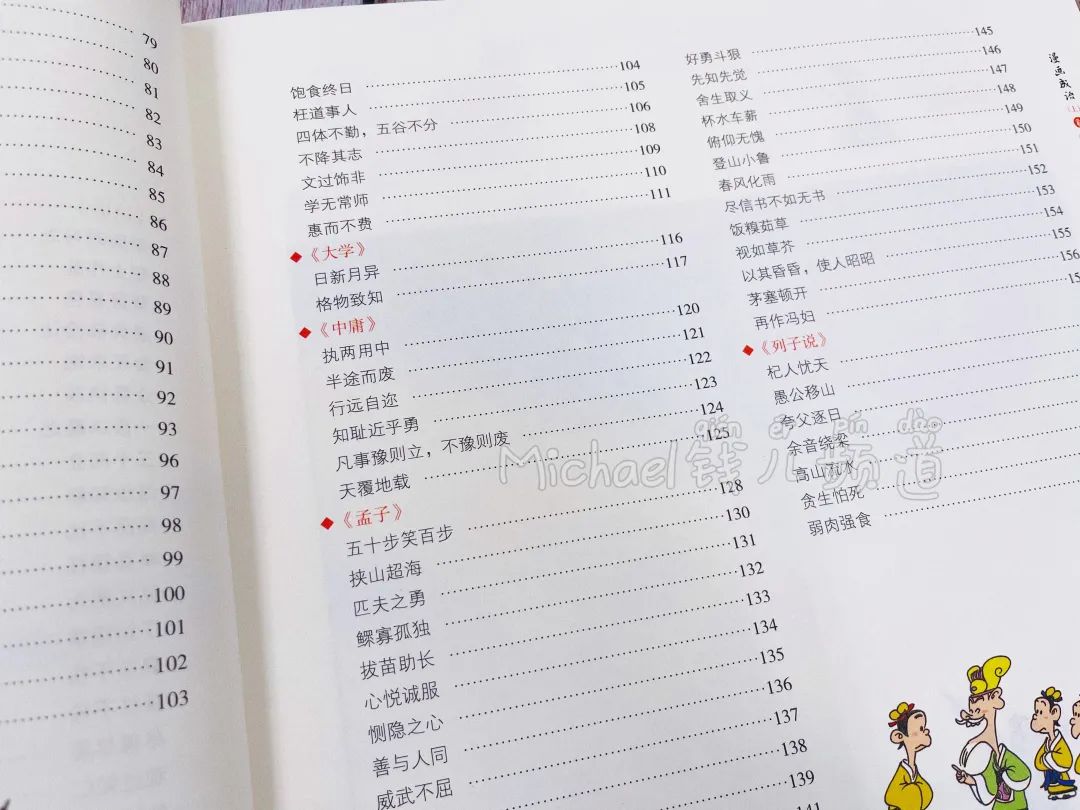 79
80
81
82
83
84
85
86
87
88
89
90
91
92
93
96
97
98
99
100
101
102
103
饱食终日 104
枉道事人 105
四体不勤，五谷不分 106
不降其志 108
文过饰非 109
学无常师 110
惠而不费 111
《大学》
日新月异 116
格物致知 117
《中庸》
执两用中 120
半途而废 121
行远自迩 122
知耻近乎勇 123
凡事豫则立，不豫则废 124
天覆地载 125
《孟子》
五十步笑百步 128
挟山超海 130
匹夫之勇 131
鳏寡孤独 132
拔苗助长 133
心悦诚服 134
恻隐之心 135
善与人同 136
威武不屈 137
138
139
141
好勇斗狠 145
先知先觉 146
舍生取义 147
杯水车薪 148
俯仰无愧 149
登山小鲁 150
春风化雨 151
尽信书不如无书 152
饭糗茹草 153
视如草芥 154
以其昏昏，使人昭昭 155
茅塞顿开 156
再作冯妇
《列子说》
杞人忧天
愚公移山
夸父逐日
余音绕梁
高山流水
贪生怕死
弱肉强食
漫画成语
qián er pín dào
Michael钱儿频道